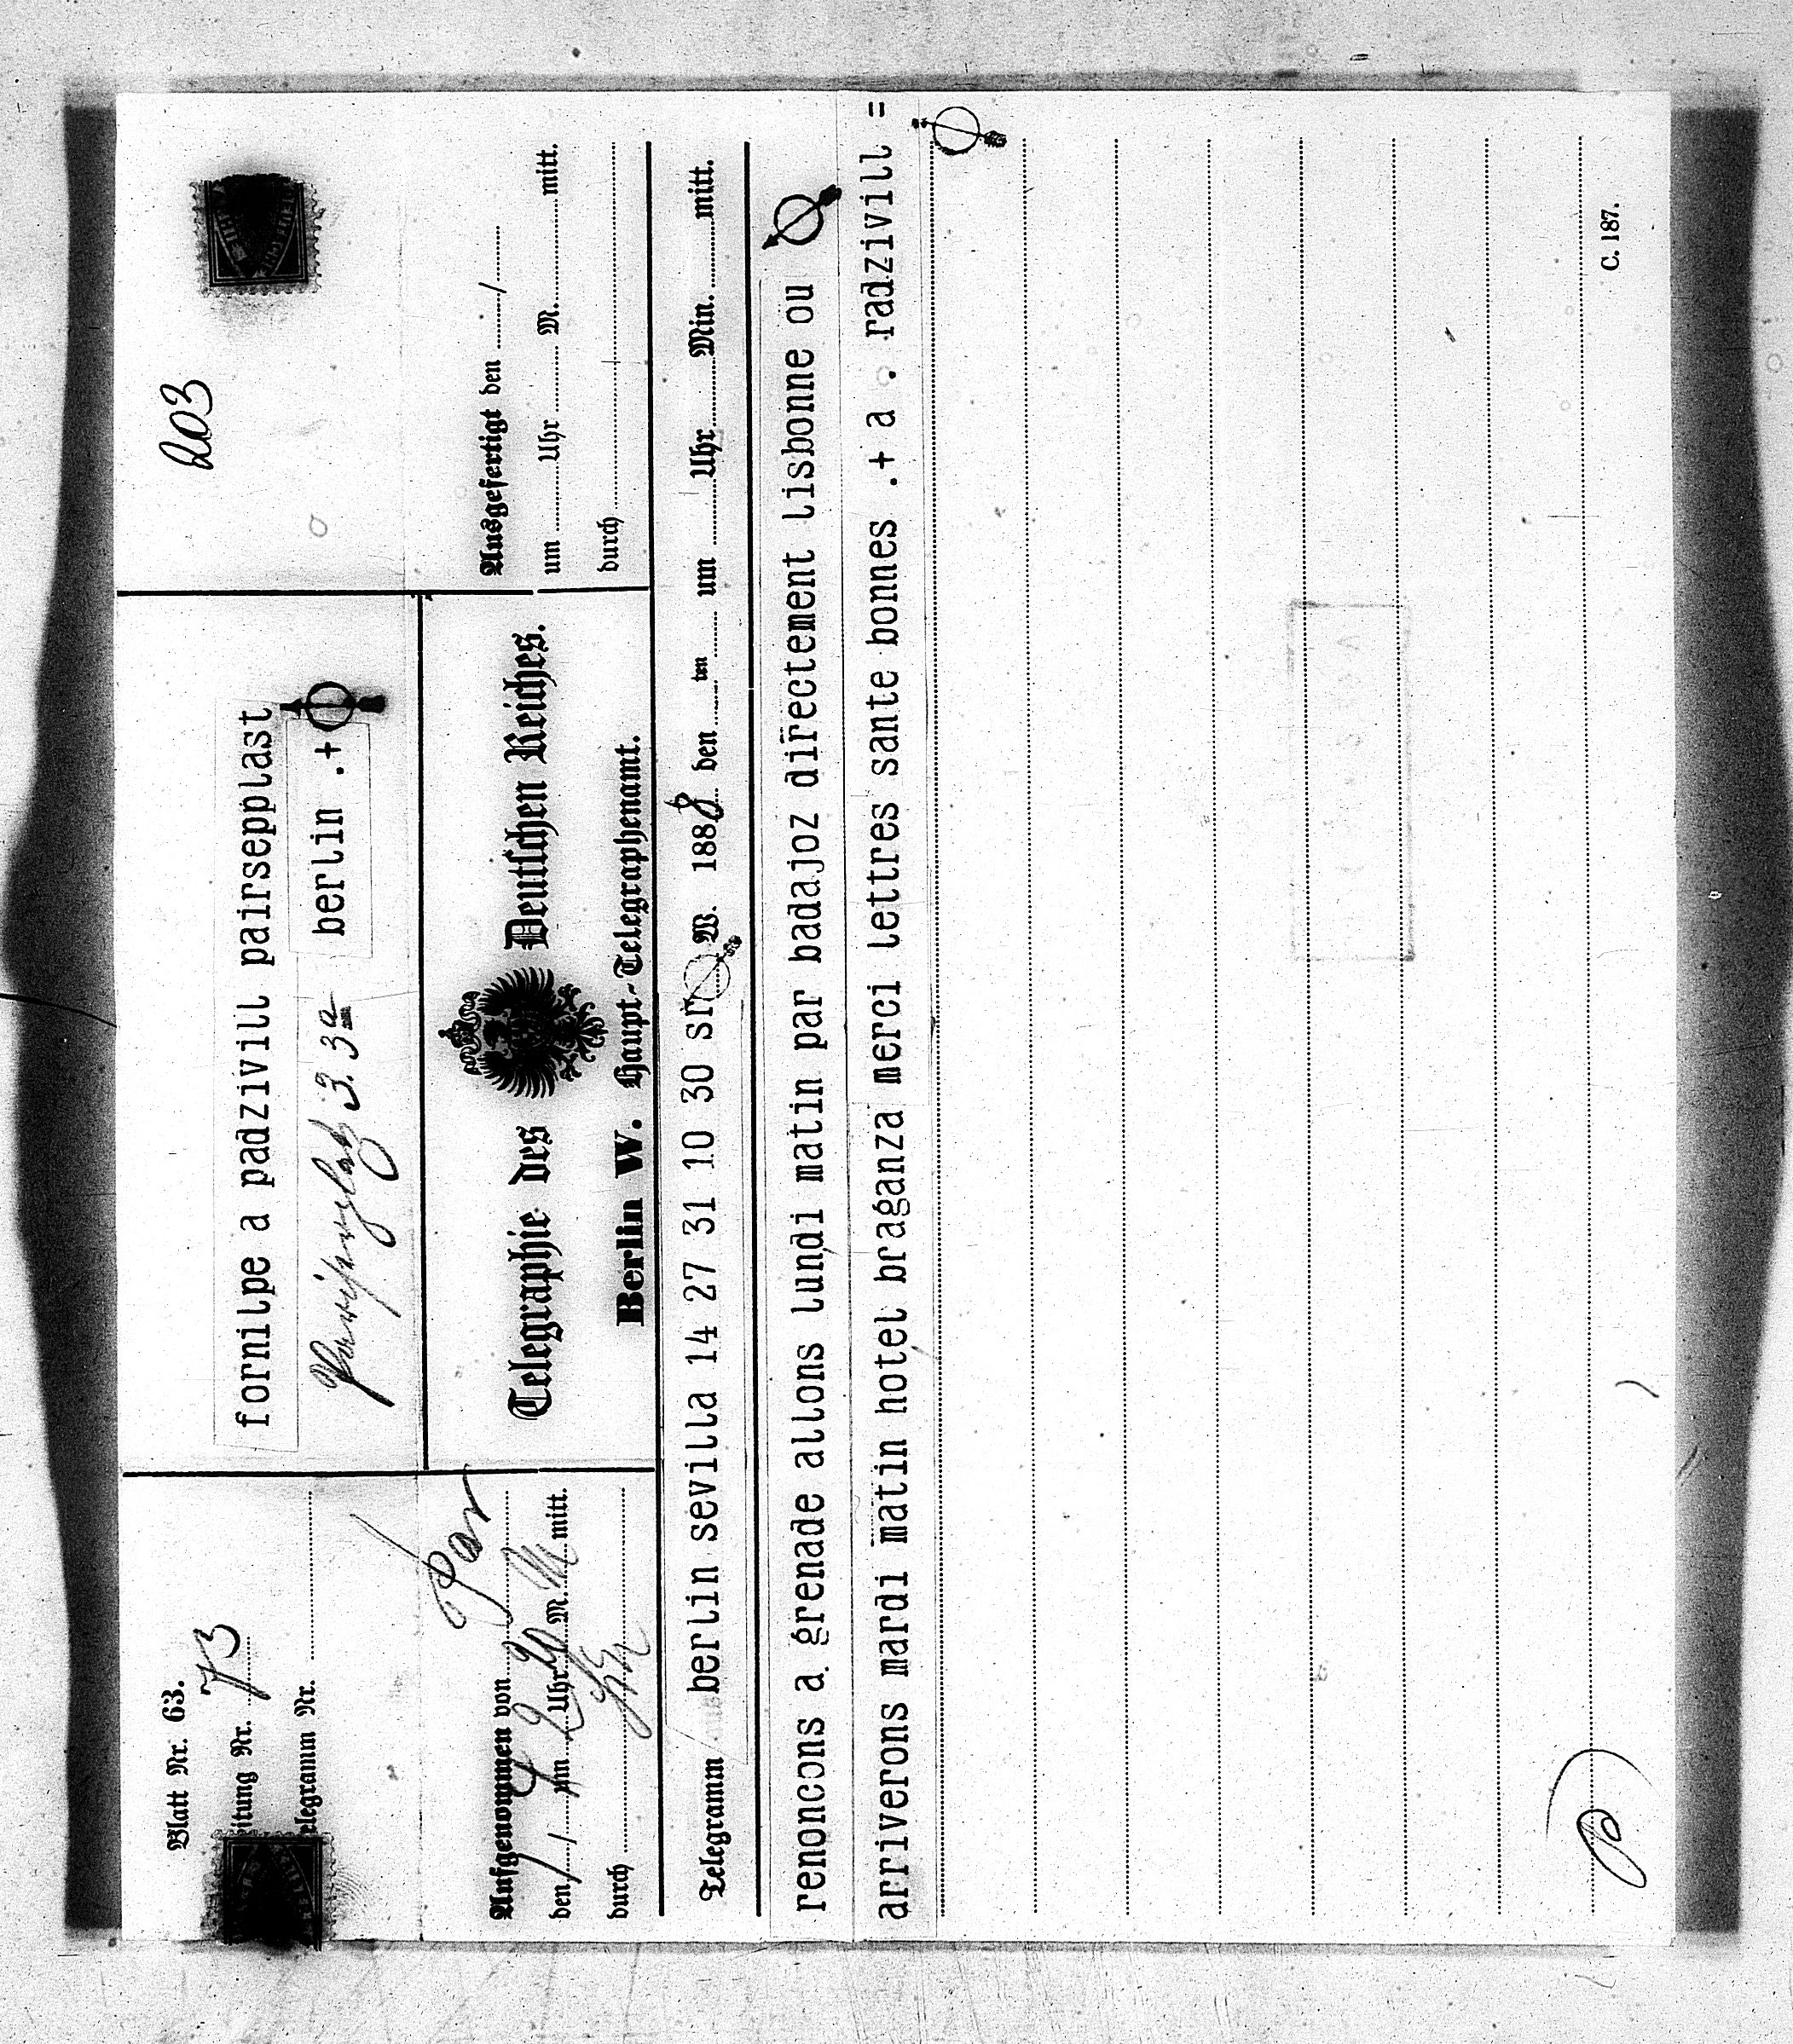 203
Blatt Nr. 63.
itung Nr. 73
elegramm Nr.
fornilpe a padzivill pairsepplast
berlin .+
3. 3a
Telegraphie des Deutschen Reiches.
Berlin W. Haupt-Telegraphenamt.
Aufgenommen von Par
den / um Uhr M. mitt.
durch
Ausgefertigt den /
um Uhr M. mitt.
durch
Telegramm berlin sevilla 14 27 31 10 30 sr W. 1888 den ten um Uhr Min. mitt.
renoncons a grenade allons lundi matin par badajoz directement lisbonne ou
arriverons mardi matin hotel braganza merci lettres sante bonnes .+ a . radzivill =
C. 187.